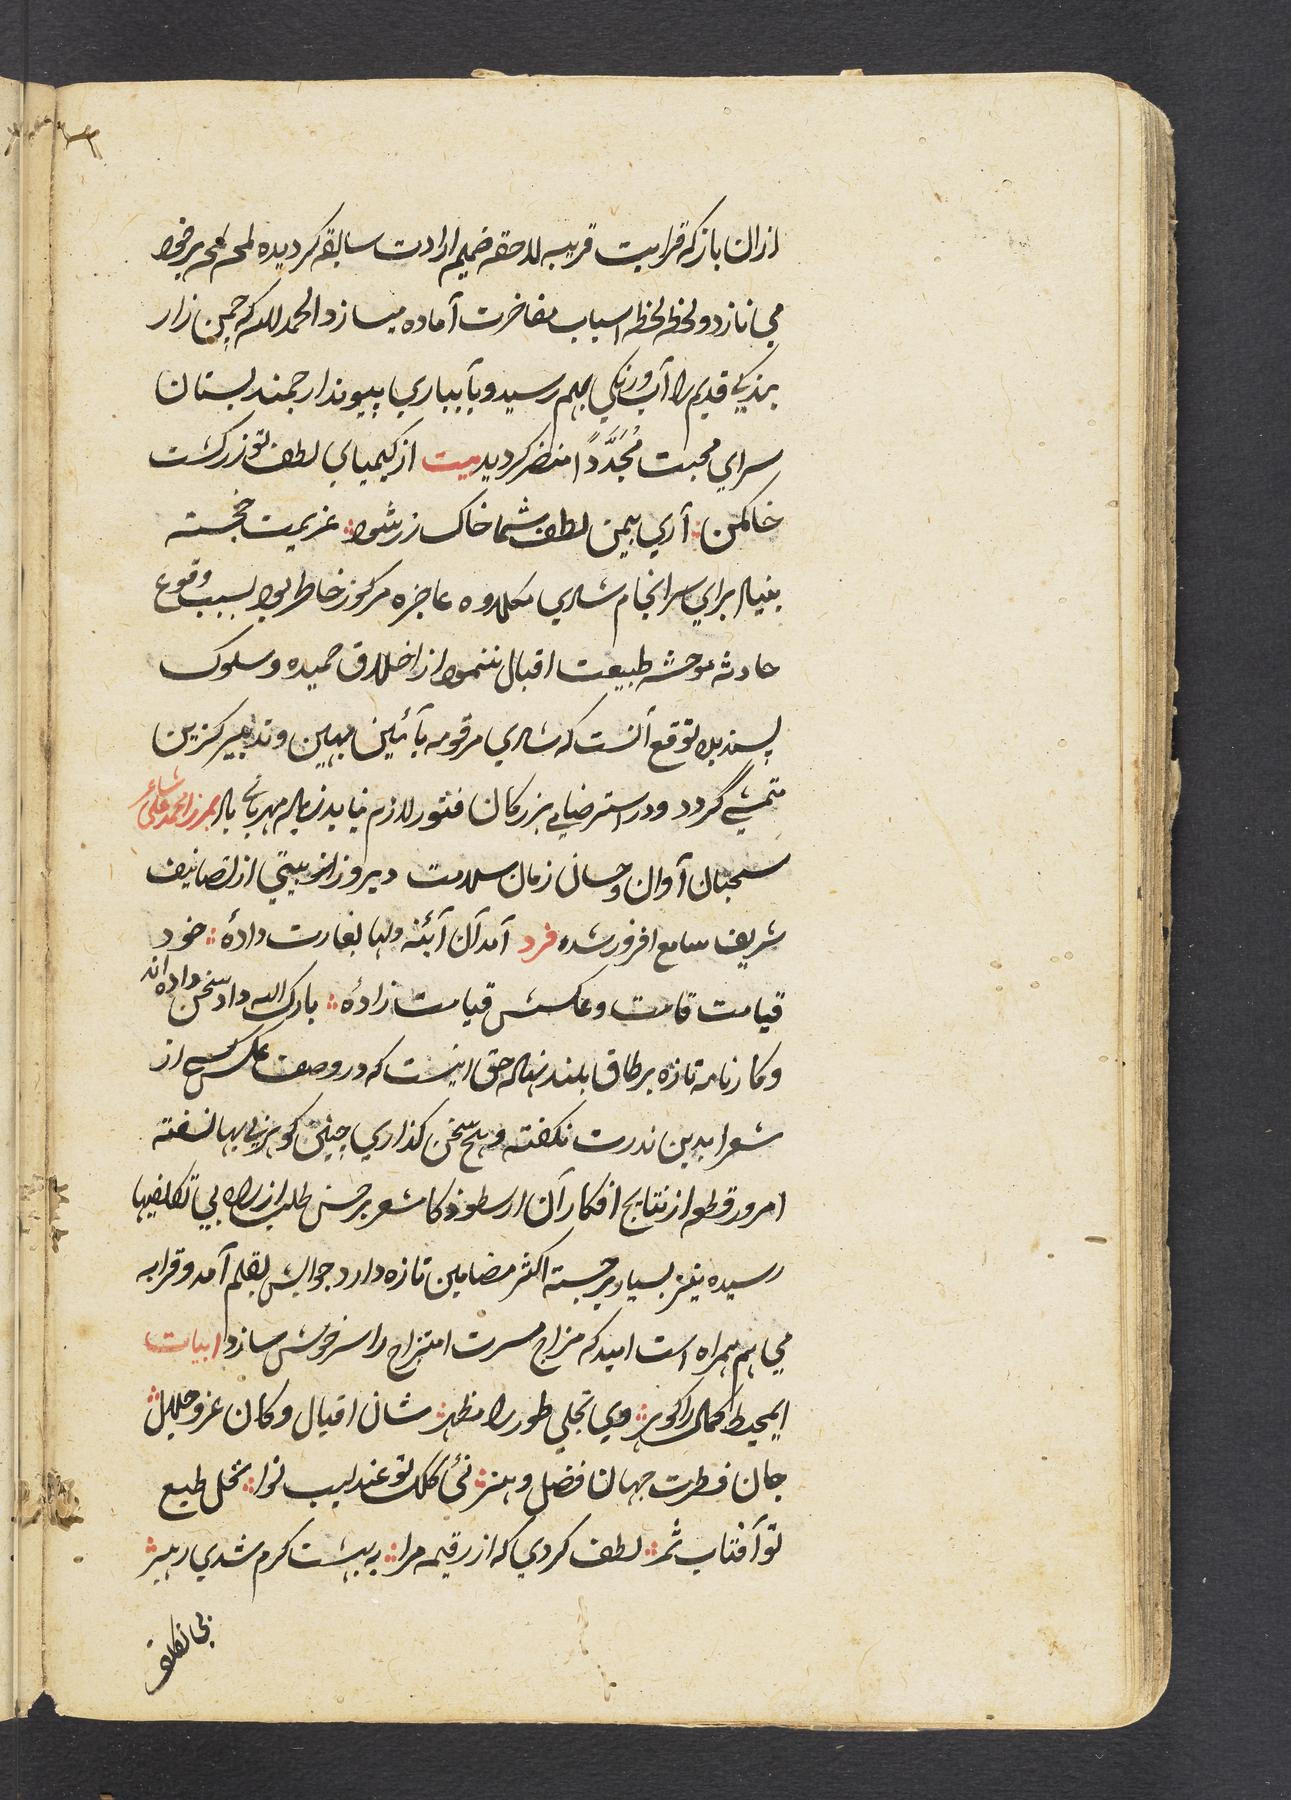 ازان باز که قرابت قریبه لاحقه ضمیم ارادت سابقه کردیده لمحه لمحه بر خود
می نازد و لحظه لحظه اسباب مفاخرت آماده میسازد الحمد لله که چمن زار
قدیم را آب و رنگی بهم رسید و بآبیاری پیوند ارجمند بستان
سرای محبت مُجَدَّدًا منضر کردید بیت از کیمیای لطف تو زر کشت
خاکمن ؛ آری بیمن لطف شما خاک زر شود ؛ عزیمت خجسته
برای سرانجام شادی عاجزه مرکوز خاطر بود بسبب وقوع
حادثه موحشه طبیعت اقبال ننمود از اخلاق حمیده و سلوک
پسندیده توقع آنست که شادی مرقومه بآئین بهین و تدبیر کزین
متمشی گردد و در استرضای بزرکان فتور لازم نیاید زیاده مهربانی باد بمرزا محمد علی شاعر
سحبان آوان و حسان زمان سلامت دیروز بیتی از تصانیف
شریف سامع افروز شده فرد آمد آن آئنه دلها بغارت دادۀ ؛ خود
قیامت قامت و عکسش قیامت زادۀ ؛ بارک الله داد سخن داده اند
و کارنامه تازه بر طاق بلند نهاده حق اینست که در وصف عکس کسی از
شعرا بدین ندرت نکفته و هیچ سخن کذاری چنین کوهر بی بها نسفته
امروز قطعه از نتایج افکار آن ارسطو ذکا مشعر بر حسن طلب از راه بی تکلفیها
رسیده نیز بسیار برجسته اکثر مضامین تازه دارد جوابش بقلم آمد و قرابه
می هم همراه است امید که مزاج مسرت امتزاج را سرخوش سازد ابیات
ای محیط کمال را کوهر ؛ وی تجلی طور را مظهر ؛ شان اقبال و کان عز و جلال ؛
جان فطرت جهان فضل و هنر ؛ نئ کلک تو عندلیب نوا ؛ نخل طبع
تو آفتاب ثمر ؛ لطف کردی که از رقیمه مرا ؛ به بهشت کرم شدی رهبر ؛
بی تکلف